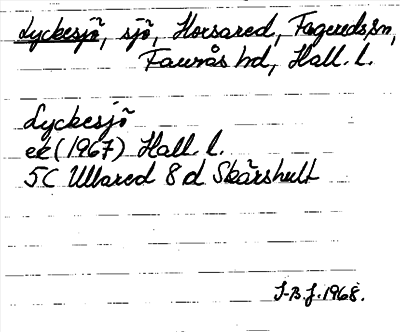 Lyckesjö, sjö, Horsared, Fagereds sn,
Faurås hd, Hall. l.
Lyckesjö
ek (1967) Hall. l.
5C Ullared 8 d Skärshult
J-B.J. 1968.